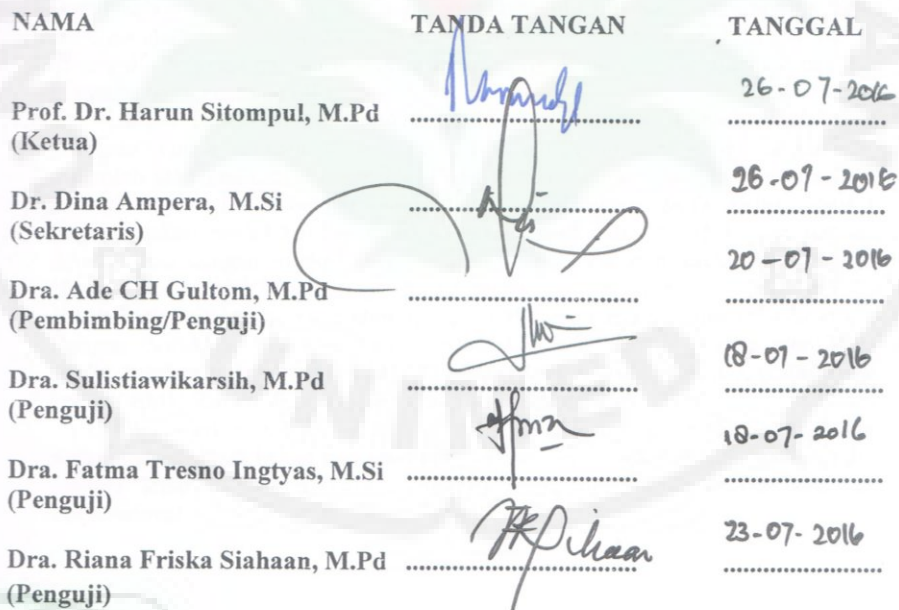 NAMA TANDA TANGAN TANGGAL
26-07-2016
Prof. Dr. Harun Sitompul, M.Pd
(Ketua)
26-07-2016
Dr. Dina Ampera, M.Si
(Sekretaris)
20-07-2016
Dra. Ade CH Gultom, M.Pd
(Pembimbing/Penguji)
18-07-2016
Dra. Sulistiawikarsih, M.Pd
(Penguji)
18-07-2016
Dra. Fatma Tresno Ingtyas, M.Si
(Penguji)
23-07-2016
Dra. Riana Friska Siahaan, M.Pd
(Penguji)
UNIMED